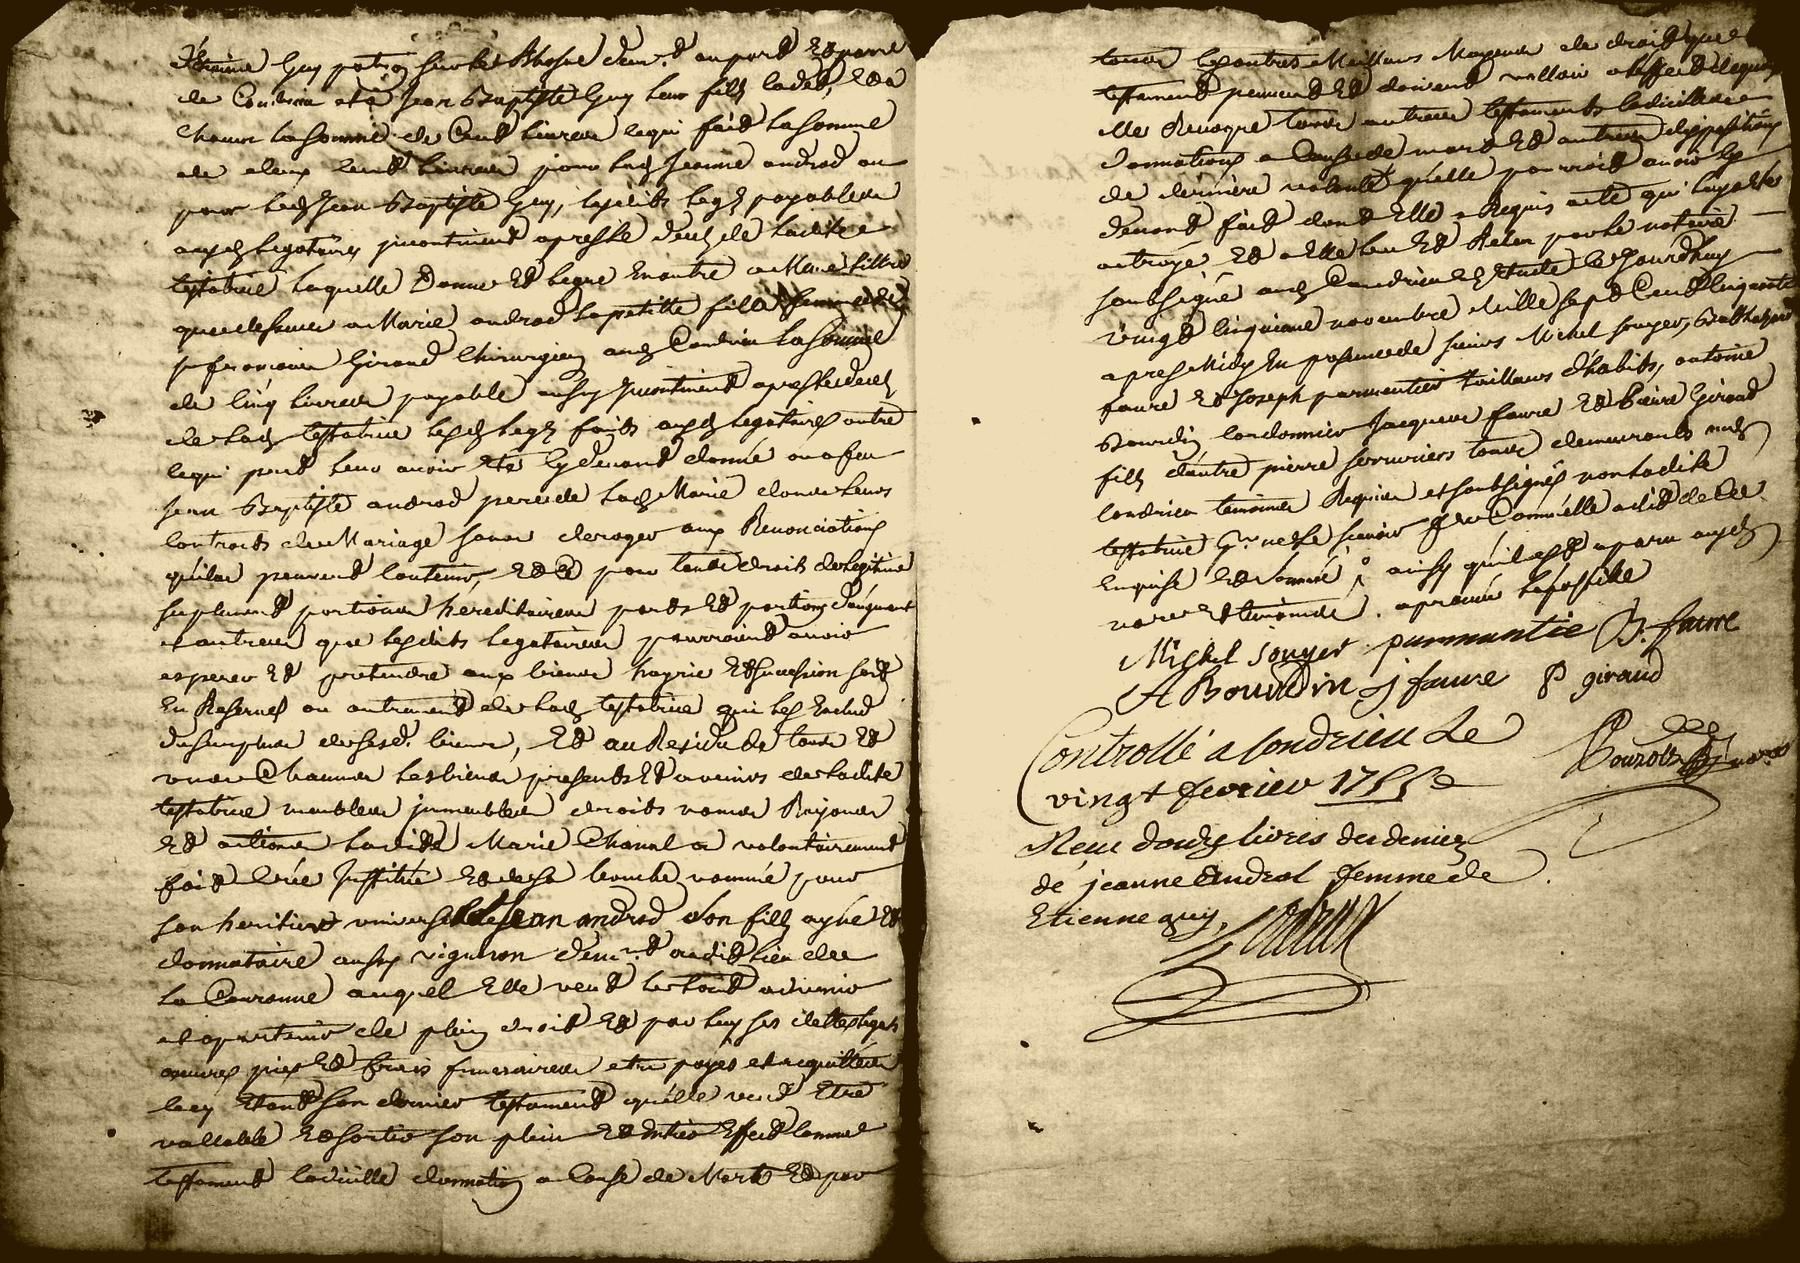 Etienne Guy patron sur le Rhosne dem.t au port Et parre
de Condrieu et a Jean Baptiste Guy leur fils cadet, Et a
chacun la somme de Cent livres ce qui fait la somme
de deux cent livres pour lad Jeanne androd ou
pour led Jean Baptiste Guy, lesdits legs payables
auxd legataires incontinent apres le deces de ladite
testatrice laquelle Donne Et legue En outre a Meme tiltre
que dessus a Marie androd sa petitte fille femme de
sr francois Giraud Chirurgien aud Condrieu la somme
de Cinq livres payable aussy Incontinent apres le deces
de lad testatrice lesd legs faits auxd legataires outre
ce qui peut leur avoir Eté cy devant donné ou a feu
Jean Baptiste androd pere de lad Marie dans leurs
contrats de Mariage sans deroger aux Renonciations
qu'ils peuvent contenir, Et ce pour tous droits de legitime
suplement portions hereditaires parts Et portions d'augment
et autres que lesdits legataires pourroient avoir
esperer Et pretendre aux biens hoyrie Et succession soit
En Reserves ou autrement de lad testatrice qui les Exclud
du surplus de sesd. biens, Et au Residu de tous Et
uns Chacuns les biens presents Et avenirs de ladite
testatrice meubles immeubles droits noms Raisons
Et actions ladite Marie Chanal a volontairement
fait Créé Institué Et de sa bouche nommé pour
son heritier universel Jean androd son fils ayné Et
donnataire aussy vigneron dem.t audit lieu de
la Couronne auquel Elle veut le tout advenir
et apartenir de plein droit Et par luy ses dettes legats
oeuvres pies Et frais funeraires etre payés et acquittés
Cecy Etant son dernier testament qu'elle veut Etre
vallable Et sortir son plein Et Entier Effect comme
testament codicille donnation a Cause de Mort Et par
tous les autres Meilleurs Moyens de droit que
testament peuvent Et doivent valloir a l'effect de quoy
elle Revoque tous autres testaments codicilles
donnations a Cause de mort Et autres dispositions
de derniere volonté qu'elle pourroit avoir cy
devant fait dont Elle a Requis acte qui luy a été
octroyé Et a Elle leu Et Releu par le notaire
soubsigné aud Condrieu En Etude Ce Jourd'huy
vingt cinquieme novembre Mille sept Cent Cinquante
apres Midy En presence de sieurs Michel souyer, Balthazard
faure Et Joseph parmentier tailleurs d'habits, antoine
Bourdin cordonnier Jacques faure Et pierre Giraud
fils d'autre pierre serruriers tous demeurants aud
Condrieu temoins Requis et soubsignés non ladite
testatrice pr ne le scavoir faire Comm'elle a dit de Ce
Enquise Et sommée ainsy qu'il est aparu auxd
nore Et temoins. aprouvé la postille
Michel souyer parmantie B. faure
A Bourdin j faure P giraud
Controllé a Condrieu Le
vingt fevrier 1755
Receu douze livres des deniers
de jeanne Androd femme de
Etienne guy.